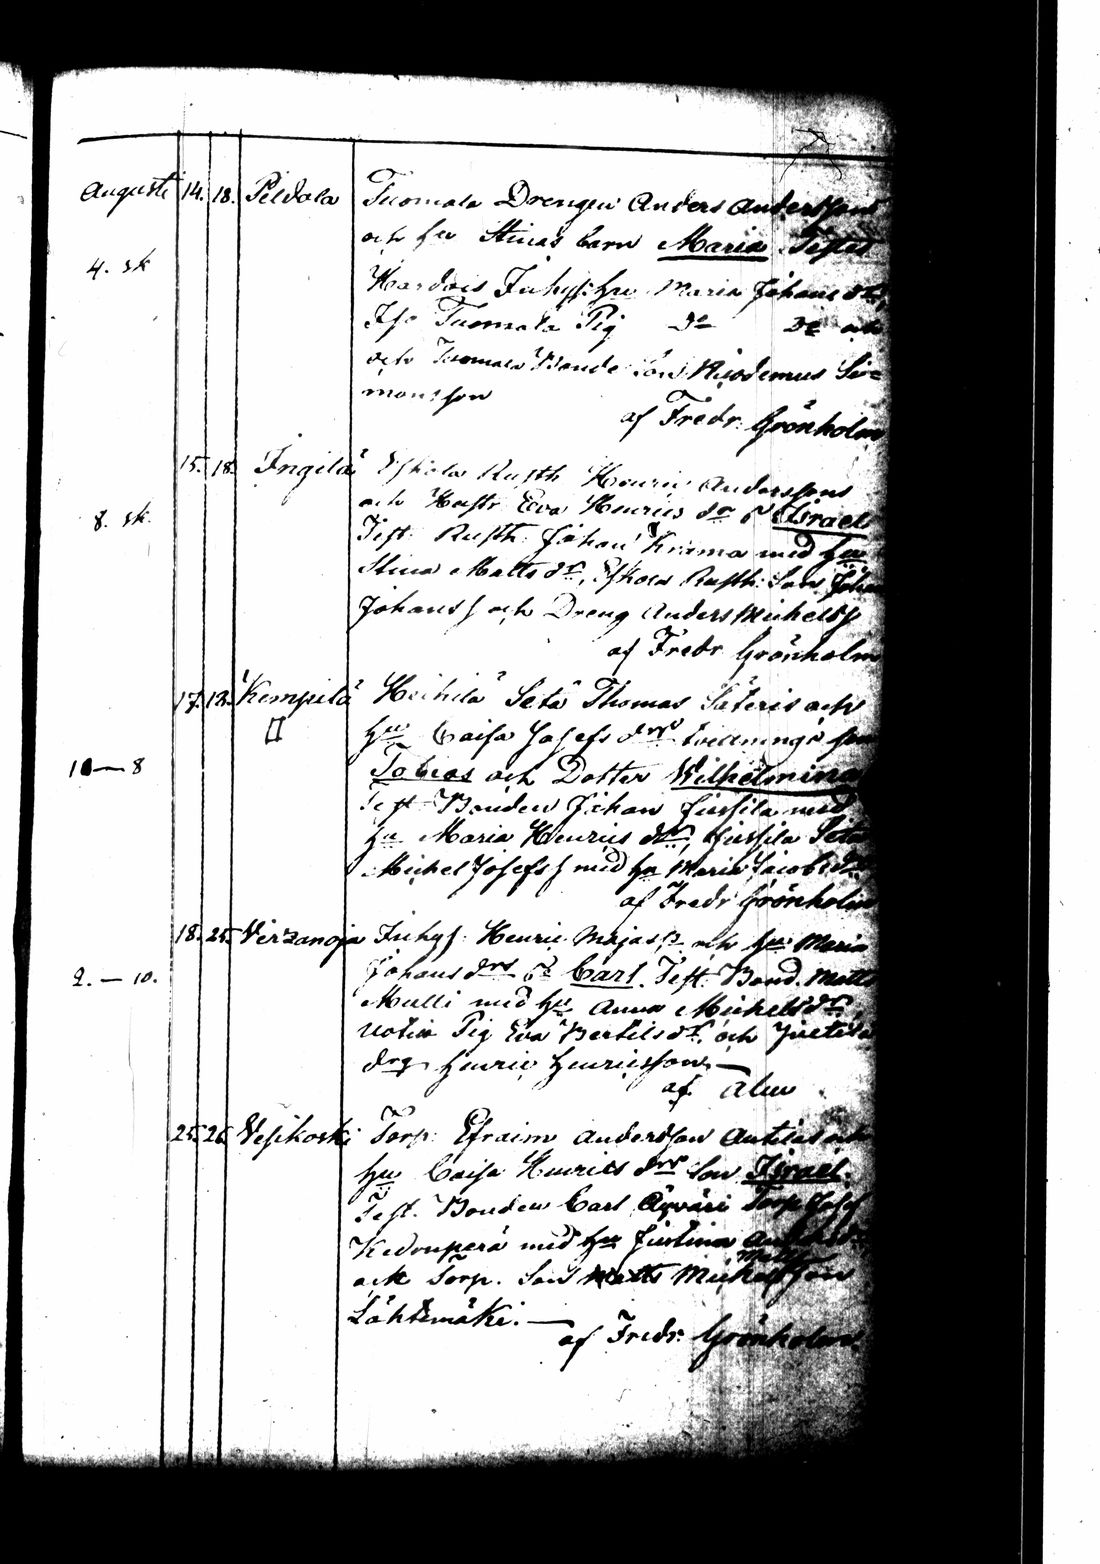 Augusti 14. 18. Peldola Tuomala Drengen Anders Anderssons
och hu Stinas barn Maria Testes
4. sk
Hardois Inhys: hu Maria Johans dr,
Tuomala Pig do do och
och Tuomala Bonde Son Nicodemus Si=
monsson
af Fredr. Grönholm
15. 18. Ingilä Eskola Rusth Henric Anderssons
och Hustr Eva Henrics dr Israel
8. sk.
Test. Rusth: Johan Krama med hu
Stina Matts dr, Eskola Rusth: Son Johan
Johans s och Dreng Anders Michels s
af Fredr Grönholm
17. 18. Kempilä Heikilä Seta Thomas Säteris och
hu Caisa Josefs drs tvillinge son
10 — 8 Tobias och Dotter Wilhelmina
Test Bonden Johan med
hu Maria Henrics dr, Seta
Michel Josefs s med hu Maria Jacobs dr
af Fredr Grönholm
18. 25. Virzanoja Inhys: Henric och hu Maria
2. — 10. Johans drs Carl. Test. Bond. Matts
Mulli med hu Anna Michels dr,
Pig Eva Bertils dr, och
drg Henric Henricsson. —
af Alm
25. 26. Vesikoski Torp: Efraim Andersson Antilas och
hu Caisa Henrics drs Son Israel.
Test. Bonden Carl Äyväri Torp Josef
Kedonperä med hu Justina
Matts
och Torp. Son Michelsson
Lähtemäki. —
af Fredr: Grönholm